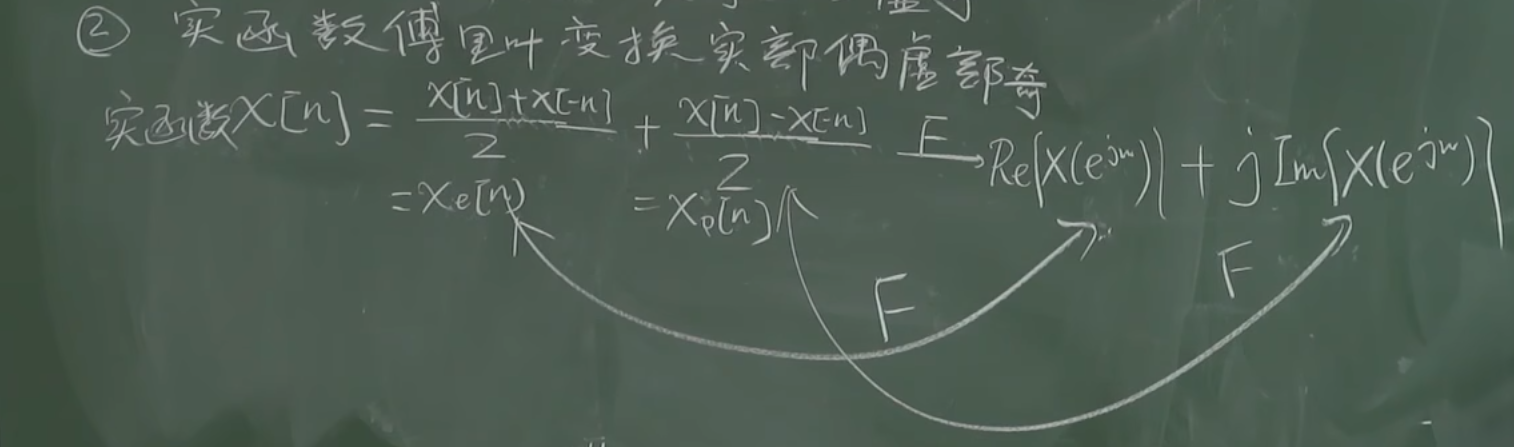 ② 实函数傅里叶变换实部偶虚部奇
实函数 x[n] = (x[n]+x[-n])/2 + (x[n]-x[-n])/2 —F→ Re{X(e^{jw})} + j Im{X(e^{jw})}
= x_e[n] = x_o[n]
F F